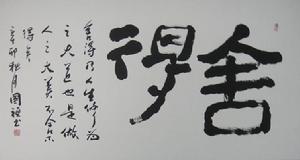 舍得
舍得乃人生修为
之大道也是做
人之大美不舍不
得矣
辛卯秋月国书